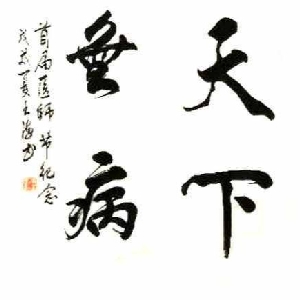 天下
無病
首届医师节纪念
戊戌夏王海书